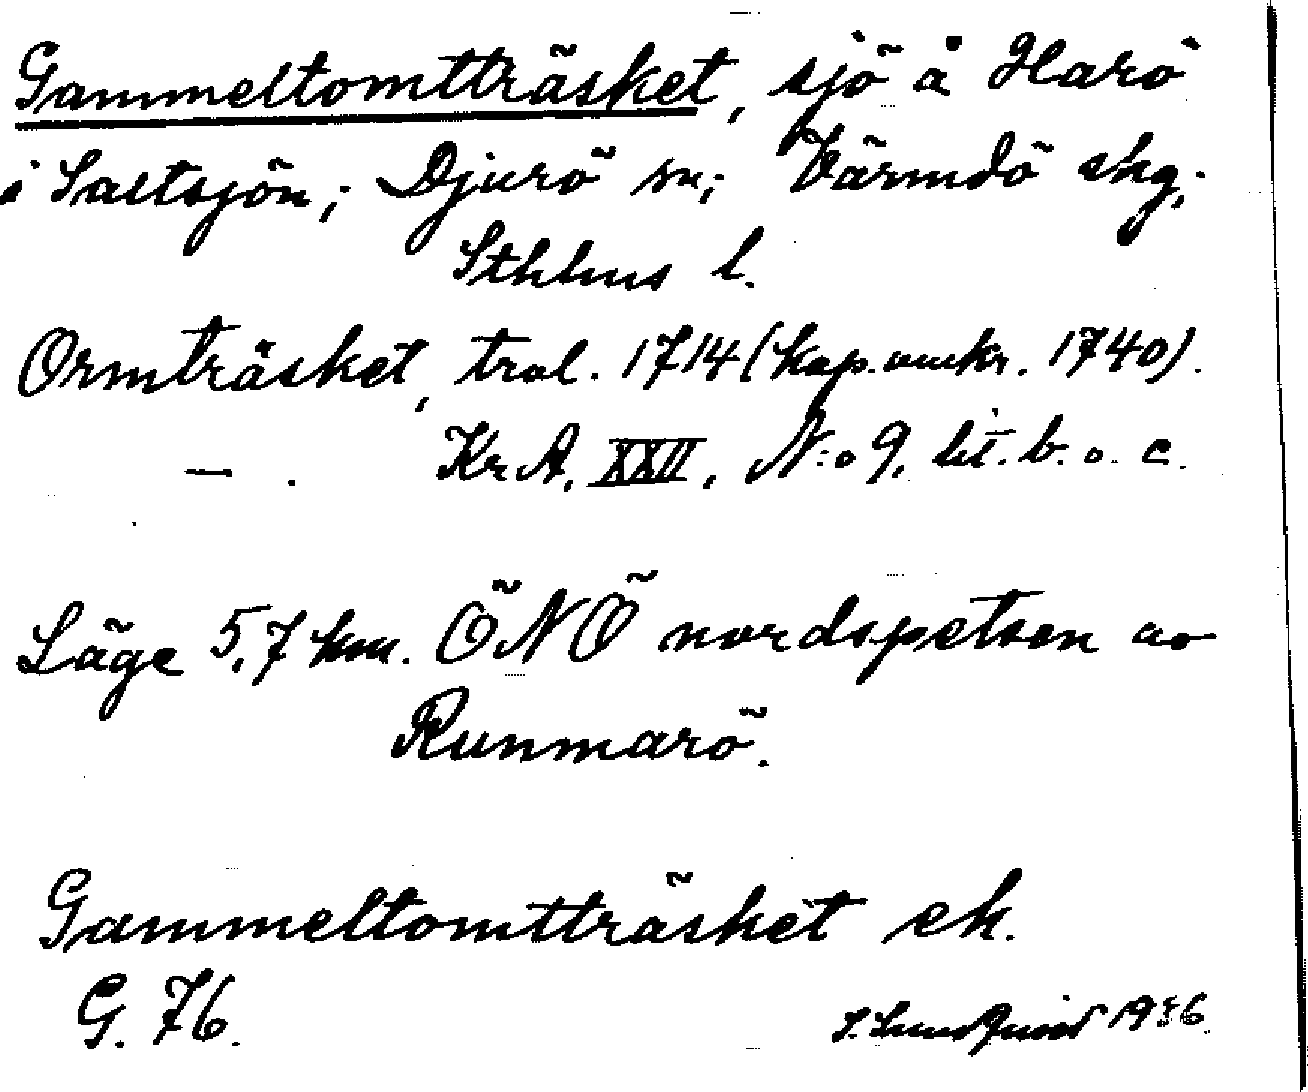 Gammeltomtträsket, sjö å Harö
i Saltsjön; Djurö sn; Värmdö skg;
Sthlms l.
Ormträsket, trol. 1714 (kap. omkr. 1740).
— . KrA, XXII, N:o 9, lit. b. o. c.
Läge 5,7 km. ÖNÖ nordspetsen av
Runmarö.
Gammeltomtträsket ek.
G. 76.